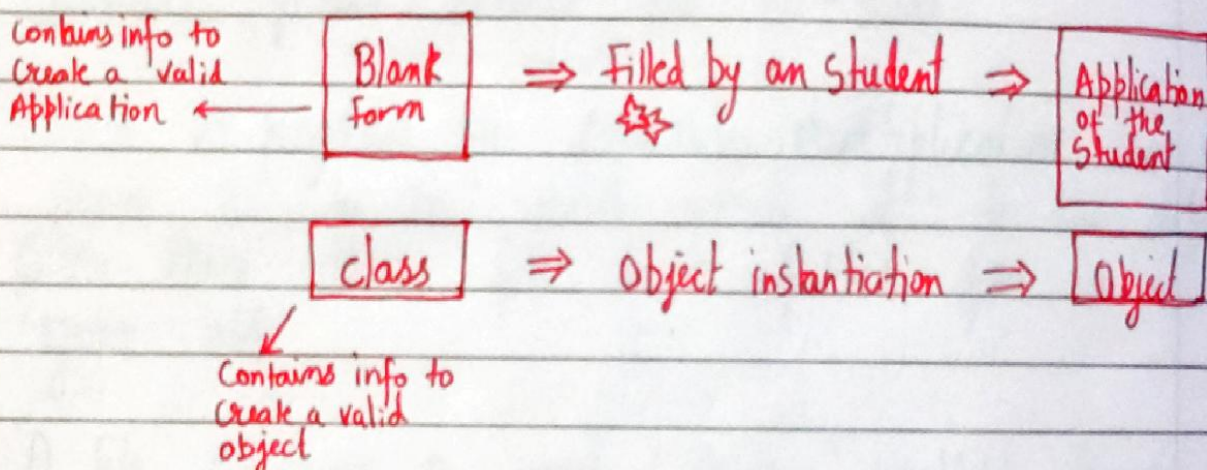 Contains info to
Create a valid
Application
Blank
form
⇒ Filled by an Student ⇒
Application
of the
Student
Class ⇒ Object instantiation ⇒ Object
Contains info to
Create a valid
object